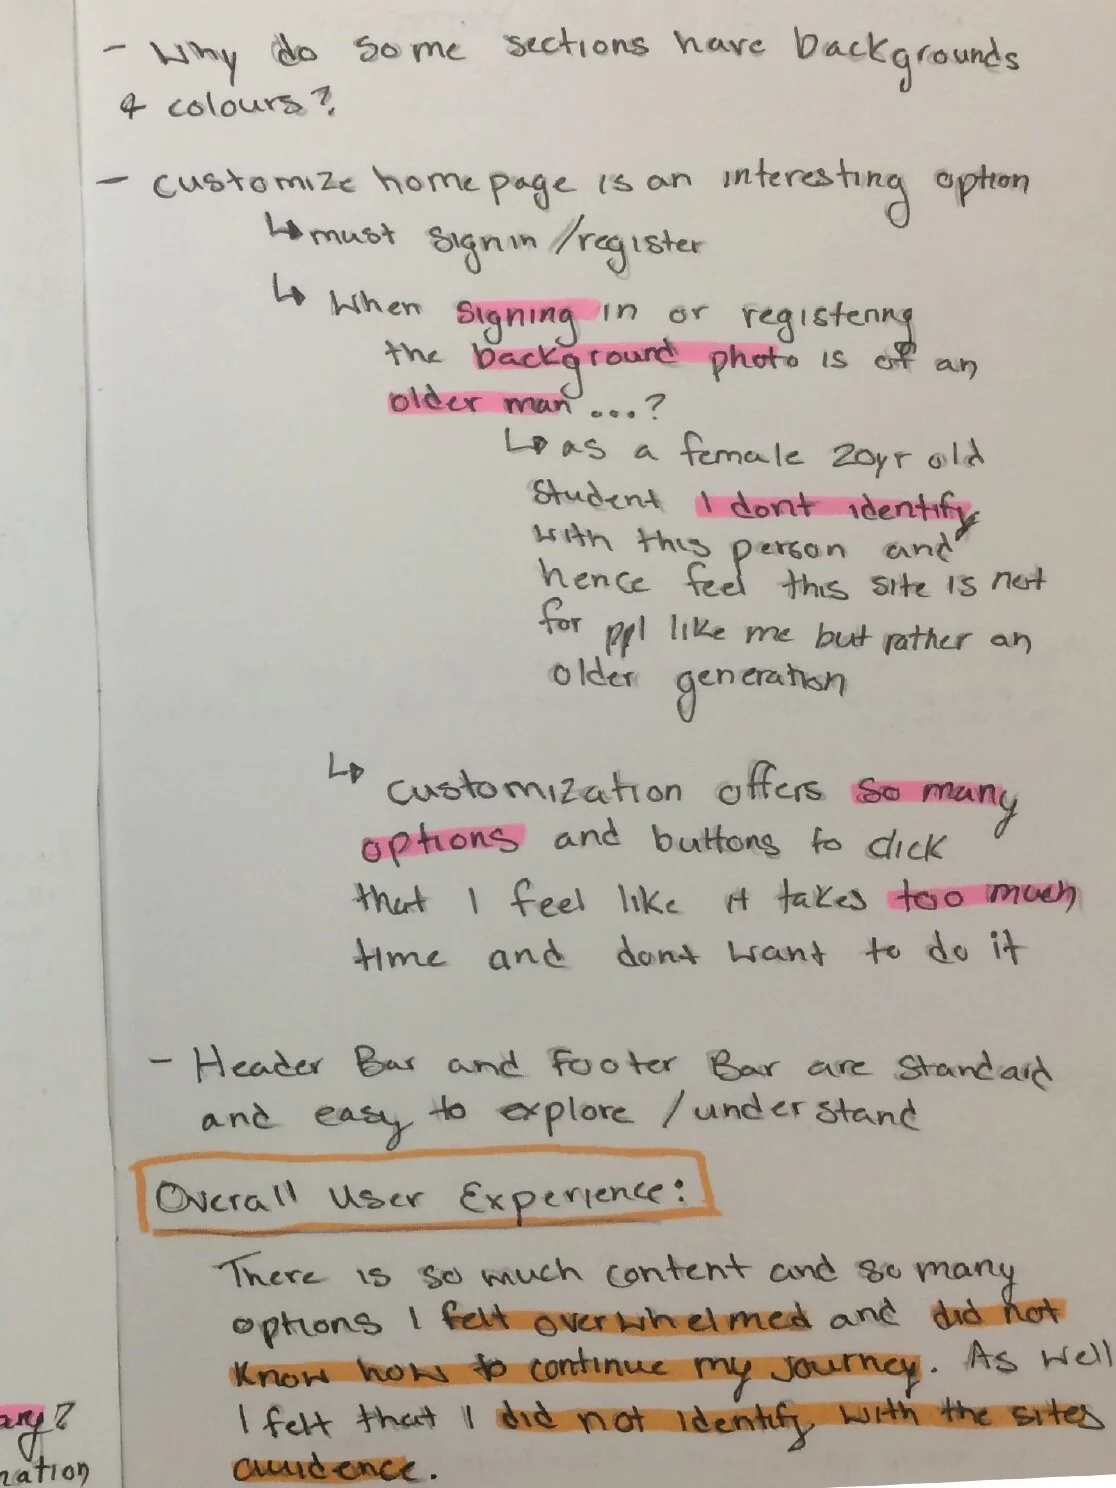 - Why do some sections have backgrounds
& colours?
- customize homepage is an interesting option
↳ must signin/register
↳ When signing in or registering
the background photo is of an
older man ...?
↳ as a female 20yr old
student I dont identify
with this person and
hence feel this site is not
for ppl like me but rather an
older generation
↳ customization offers so many
options and buttons to click
that I feel like it takes too much
time and dont want to do it
- Header Bar and footer Bar are standard
and easy to explore /understand
Overall User Experience:
There is so much content and so many
options I felt overwhelmed and did not
know how to continue my journey. As well
I felt that I did not identify with the sites
auidence.
ary?
nation